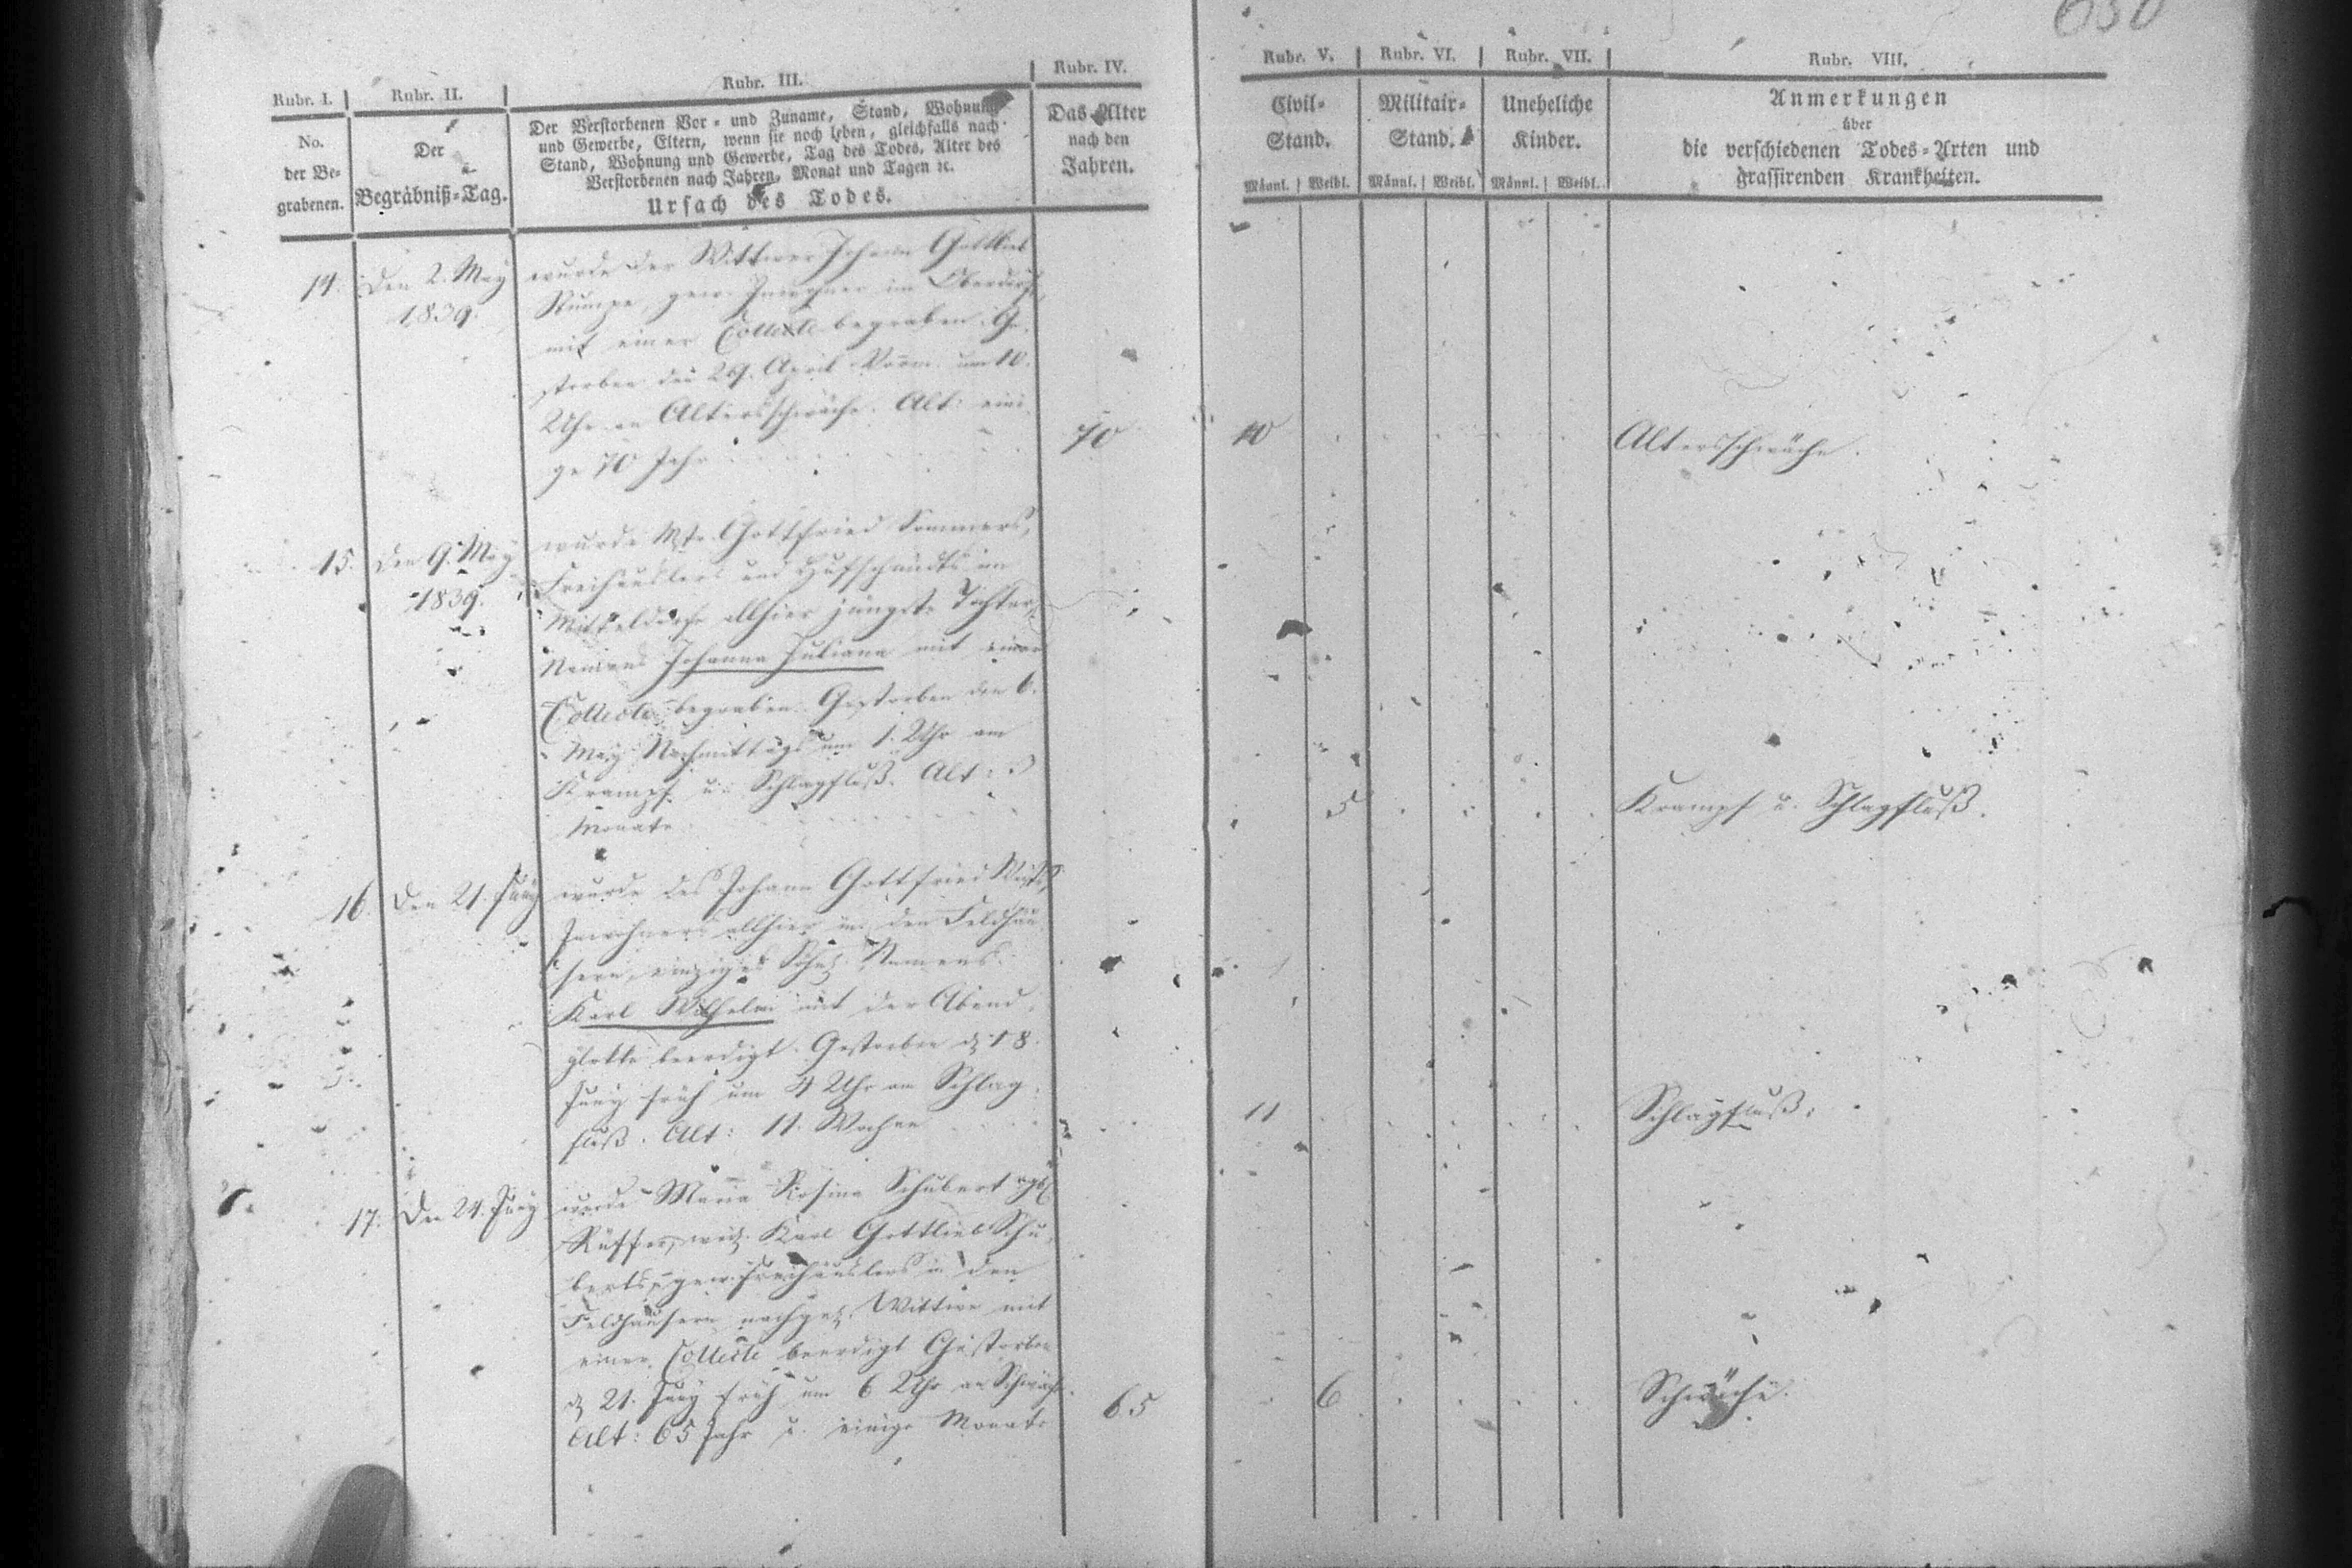 650
Rubr. I.
Rubr. II.
Rubr. III.
Rubr. IV.
Rubr. V.
Rubr. VI.
Rubr. VII.
Rubr. VIII.
No.
der Be-
grabenen.
Der
Begräbniß-Tag.
Der Verstorbenen Vor- und Zuname, Stand, Wohnung
und Gewerbe, Eltern, wenn sie noch leben, gleichfalls nach
Stand, Wohnung und Gewerbe, Tag des Todes, Alter des
Verstorbenen nach Jahren, Monat und Tagen ꝛc.
Ursach des Todes.
Das Alter
nach den
Jahren.
Civil-
Stand.
Männl. Weibl.
Militair-
Stand.
Männl. Weibl.
Uneheliche
Kinder.
Männl. Weibl.
Anmerkungen
über
die verschiedenen Todes-Arten und
grassirenden Krankheiten.
14.
den 2. May
1839.
wurde der Wittwer Johann Gottlieb
Rumpe, gew. Inwohner im Oberdorfe,
mit einer Collecte begraben. Ge-
storben den 29. April Vorm. um 10.
Uhr an Altersschwäche. Alt: eini-
ge 70 Jahr
70
10
Altersschwäche.
15.
den 9. May
1839.
wurde Mstr. Gottfried Sommers,
Freihäuslers und Hufschmidts im
Mitteldorfe allhier jüngste Tochter,
Namens Johanna Juliana mit einer
Collecte begraben. Gestorben den 6.
May Nachmittags um 1. Uhr am
Krampf u. Schlagfluß. Alt: 3
Monate
5
Krampf u. Schlagfluß.
16.
Den 21. Juny
wurde des Johann Gottfried
Inwohners allhier in den Feldhäu-
sern, einziges Söhnl. Namens
Karl Wilhelm mit der Abend-
glocke beerdigt. Gestorben d. 18.
Juny früh um 4 Uhr am Schlag-
fluß. Alt: 11. Wochen
11
Schlagfluß.
17.
Den 24. Juny
wurde Maria Rosina Schubert
Rüffer, weil. Karl Gottlieb Schu-
berts, gew. Freihäuslers in den
Feldhäusern nachgel. Wittwe mit
einer Collecte beerdigt Gestorben
d. 21. Juny früh um 6 Uhr an Schwäche.
Alt: 65 Jahr u. einige Monate
65
6
Schwäche.